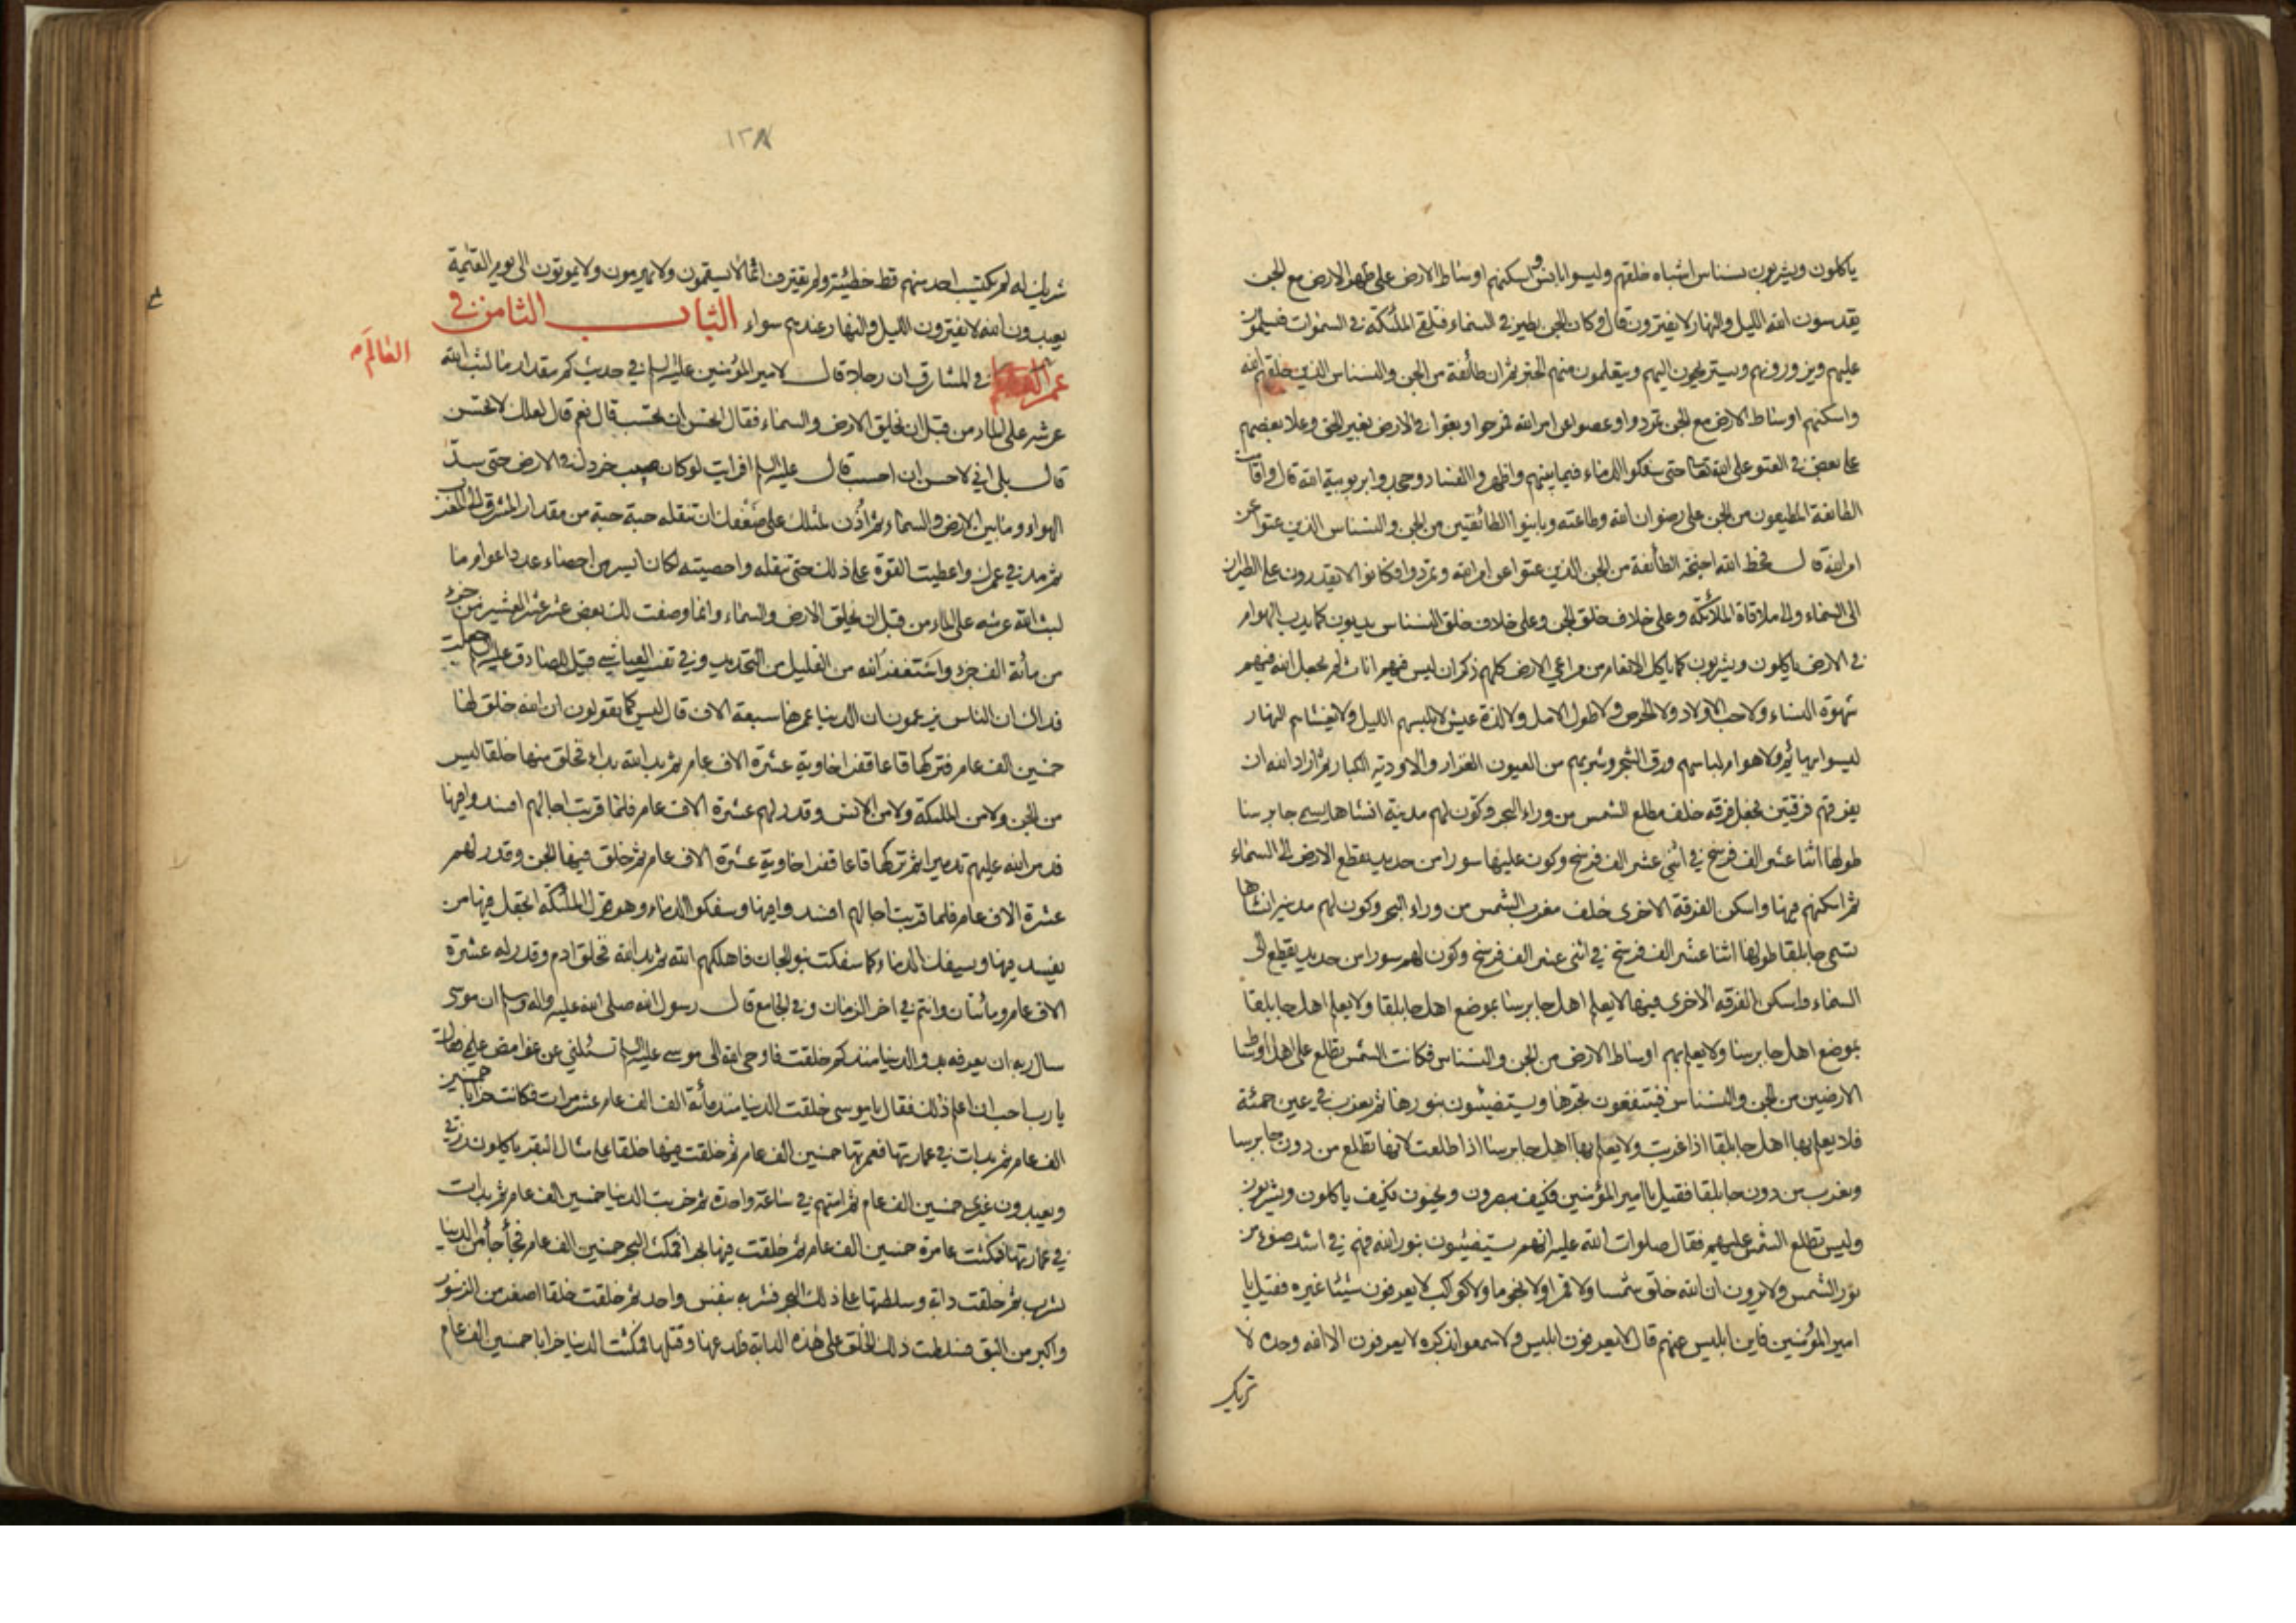 ياكلون ويشربون نسناس اشباه خلقهم وليسوا بانس واسكنهم اوساط الارض على ظهر الارض مع الجن
يقدسون الله الليل والنهار لا يفترون قال وكان الجن تطير في السماء فتلقى الملئكة في السموات فيسلمون
عليهم ويزورونهم ويستريحون اليهم ويتعلمون منهم الخبر ثم ان طائفة من الجن والنسناس الذين خلقهم الله
واسكنهم اوساط الارض مع الجن تمردوا وعصوا عن امر الله فمرحوا وبغوا في الارض بغير الحق وعلا بعضهم
على بعض في العتو على الله تعالى حتى سفكوا الدماء فيما بينهم واظهروا الفساد وجحدوا بربوبية الله قال واقامت
الطائفة المطيعون من الجن على رضوان الله وطاعته وباينوا الطائفتين من الجن والنسناس الذين عتوا عن
امر الله قال فحط الله اجنحة الطائفة من الجن الذين عتوا عن امر الله وتمردوا فكانوا لا يقدرون على الطيران
الى السماء والى ملاقاة الملائكة وعلى خلاف خلق الجن وعلى خلاف خلق النسناس يدبون كما يدب الهوام
في الارض ياكلون ويشربون كما ياكل الانعام من مراعي الارض كلهم ذكران ليس فيهم اناث لم يجعل الله فيهم
شهوة النساء ولا حب الاولاد ولا الحرص ولا طول الامل ولا لذة عيش لا يلبسهم الليل ولا يغشاهم النهار
ليسوا ببهائم ولا هوام لباسهم ورق الشجر وشربهم من العيون الغزار والاودية الكبار ثم اراد الله ان
يفرقهم فرقتين فجعل فرقة خلف مطلع الشمس من وراء البحر وكون لهم مدينة انشاها يسمى جابرسا
طولها اثنا عشر الف فرسخ في اثني عشر الف فرسخ وكون عليها سورا من حديد يقطع الارض الى السماء
ثم اسكنهم فيها واسكن الفرقة الاخرى خلف مغرب الشمس من وراء البحر وكون لهم مدينة انشاها
تسمى جابلقا طولها اثنا عشر الف فرسخ في اثنى عشر الف فرسخ وكون لهم سورا من حديد يقطع الى
السماء واسكن الفرقة الاخرى فيها لا يعلم اهل جابرسا بموضع اهل جابلقا ولا يعلم اهل جابلقا
بموضع اهل جابرسا ولا يعلم بهم اوساط الارض من الجن والنسناس فكانت الشمس تطلع على اهل اوساط
الارضين من الجن والنسناس فينتفعون بحرها ويستضيئون بنورها ثم تغرب في عين حمئة
فلا يعلم بها اهل جابلقا اذا غربت ولا يعلم بها اهل جابرسا اذا طلعت لانها تطلع من دون جابرسا
وتغرب من دون جابلقا فقيل يا امير المؤمنين فكيف يبصرون ويحيون وكيف ياكلون ويشربون
وليس تطلع الشمس عليهم فقال صلوات الله عليه انهم يستضيئون بنور الله فهم في اشد ضوء من
نور الشمس ولا يرون ان الله خلق شمسا ولا قمرا ولا نجوما ولا كواكب لا يعرفون شيئا غيره فقيل يا
امير المؤمنين فاين ابليس عنهم قال لا يعرفون ابليس ولا سمعوا بذكره لا يعرفون الا الله وحده لا
شريك
١٢٨
شريك له لم يكتسب احد منهم قط خطيئة ولم يقترف اثما لا يسقمون ولا يهرمون ولا يموتون الى يوم القيمة
يعبدون الله لا يفترون الليل والنهار عندهم سواء الباب الثامن في
العالم
عمر في المشارق ان رجلا قال لامير المؤمنين عليه السلم في حديث كم مقدار ما لبث الله
عرشه على الماء من قبل ان يخلق الارض والسماء فقال اتحسن ان تحتسب قال نعم قال لعلك لا تحسن
قال بلى اني لاحسن ان احسب قال عليه السلم افرايت لو كان صب خردل في الارض حتى سد
الهواء وما بين الارض والسماء ثم اذن لمثلك على ضعفك ان تنقله حبة حبة من مقدار المشرق الى المغرب
ثم مد في عمرك واعطيت القوة على ذلك حتى تنقله واحصيته لكان ايسر من احصاء عدد اعوام ما
لبث الله عرشه على الماء من قبل ان يخلق الارض والسماء وانما وصفت لك بعض عشر عشر العشير من جزء
من مائة الف جزء واستغفر الله من القليل من التحديد وفي تفسير العياشي قيل للصادق عليه السلم جعلت
فداك ان الناس يزعمون ان الدنيا عمرها سبعة الاف قال ليس كما يقولون ان الله خلق لها
خمسين الف عام فتركها قاعا قفرا خاوية عشرة الاف عام ثم بدا لله بداء فخلق منها خلقا ليس
من الجن ولا من الملئكة ولا من الانس وقدر لهم عشرة الاف عام فلما قربت اجالهم افسدوا فيها
فدمر الله عليهم تدميرا ثم تركها قاعا قفرا خاوية عشرة الاف عام ثم خلق فيها الجن وقدر لهم
عشرة الاف عام فلما قربت اجالهم افسدوا فيها وسفكوا الدماء وهو قول الملئكة اتجعل فيها من
يفسد فيها ويسفك الدماء كما سفكت بنو الجان فاهلكهم الله ثم بدا لله فخلق ادم وقدر له عشرة
الاف عام ومائتان وانتم في اخر الزمان وفي الجامع قال رسول الله صلى الله عليه واله وسلم ان موسى
سال ربه ان يعرفه بدو الدنيا منذ كم خلقت فاوحى الله الى موسى عليه السلم تسئلني عن غوامض علمي فقال
يا رب احب ان اعلم ذلك فقال يا موسى خلقت الدنيا منذ مائة الف الف عام عشر مرات فكانت خرابا خمسين
الف عام ثم بدات في عمارتها فعمرتها خمسين الف عام ثم خلقت فيها خلقا على مثال البقر ياكلون رزقي
ويعبدون غيري خمسين الف عام ثم امتهم في ساعة واحدة ثم خربت الدنيا خمسين الف عام ثم بدات
في عمارتها فمكثت عامرة خمسين الف عام ثم خلقت فيها بحرا فمكث البحر خمسين الف عام من الدنيا
يشرب ثم خلقت دابة وسلطتها على ذلك البحر فشربه بنفس واحد ثم خلقت خلقا اصغر من الزنبور
واكبر من البق فسلطت ذلك الخلق على هذه الدابة فلدغها وقتلها فمكثت الدنيا خرابا خمسين الف عام